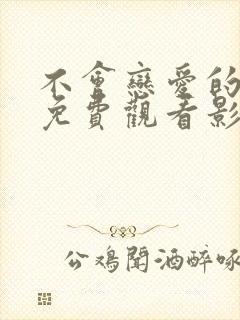 不會戀愛的
免費觀看影
公鸡聞酒醉啄